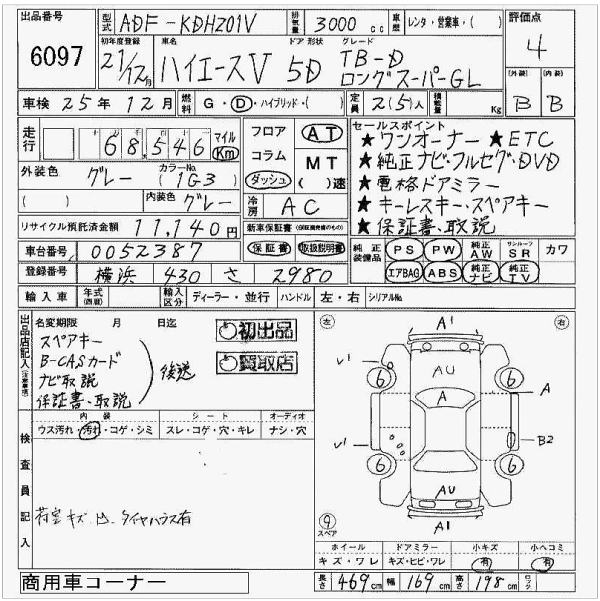 出品番号 6097
型式 ADF-KDHZ01V 排気量 3000 cc 車歴 レンタ・営業車・( )
初年度登録 21/12月 車名 ハイエースV ドア形状 5D グレード TB-D ロングスーパーGL
評価点 4
〔外装〕 B 〔内装〕 B
車検 25年 12月 燃料 G・D・ハイブリッド・( ) 定員 2(5)人 積載量 Kg
走行 68,546 マイル Km
外装色 グレー カラーNo. (1G3)
( ) 内装色 グレー
リサイクル預託済金額 11,140円
フロア AT
コラム MT
ダッシュ ( )速
冷房 AC
新車保証書
保証書 取扱説明書
セールスポイント
★ワンオーナー ★ETC
★純正ナビ・フルセグ・DVD
★電格ドアミラー
★キーレスキー・スペアキー
★保証書、取説
車台番号 0052387
登録番号 横浜 430 さ 2980
純正装備品 PS PW 純正AW サンルーフSR カワ
エアBAG ABS 純正ナビ 純正TV
輸入車 年式(西暦) 輸入区分 ディーラー・並行 ハンドル 左・右 シリアルNo.
出品店記入(注意事項)
名変期限 月 日迄
スペアキー
B-CASカード
ナビ取説
保証書、取説
後送
初出品
買取店
検査員記入
内装 シート オーディオ
ウス汚れ・汚れ・コゲ・シミ スレ・コゲ・穴・キレ ナシ・穴
荷室キズ 凹 タイヤハウス有
左 右
A1
V1 AU
6 6
A A
V1 B2
6 6
AU
A1
9
スペア
ホイール ドアミラー 小キズ 小ヘコミ
キズ・ワレ キズ・ヒビ・ワレ 有 有
長さ 469cm 幅 169cm 高さ 198cm
商用車コーナー